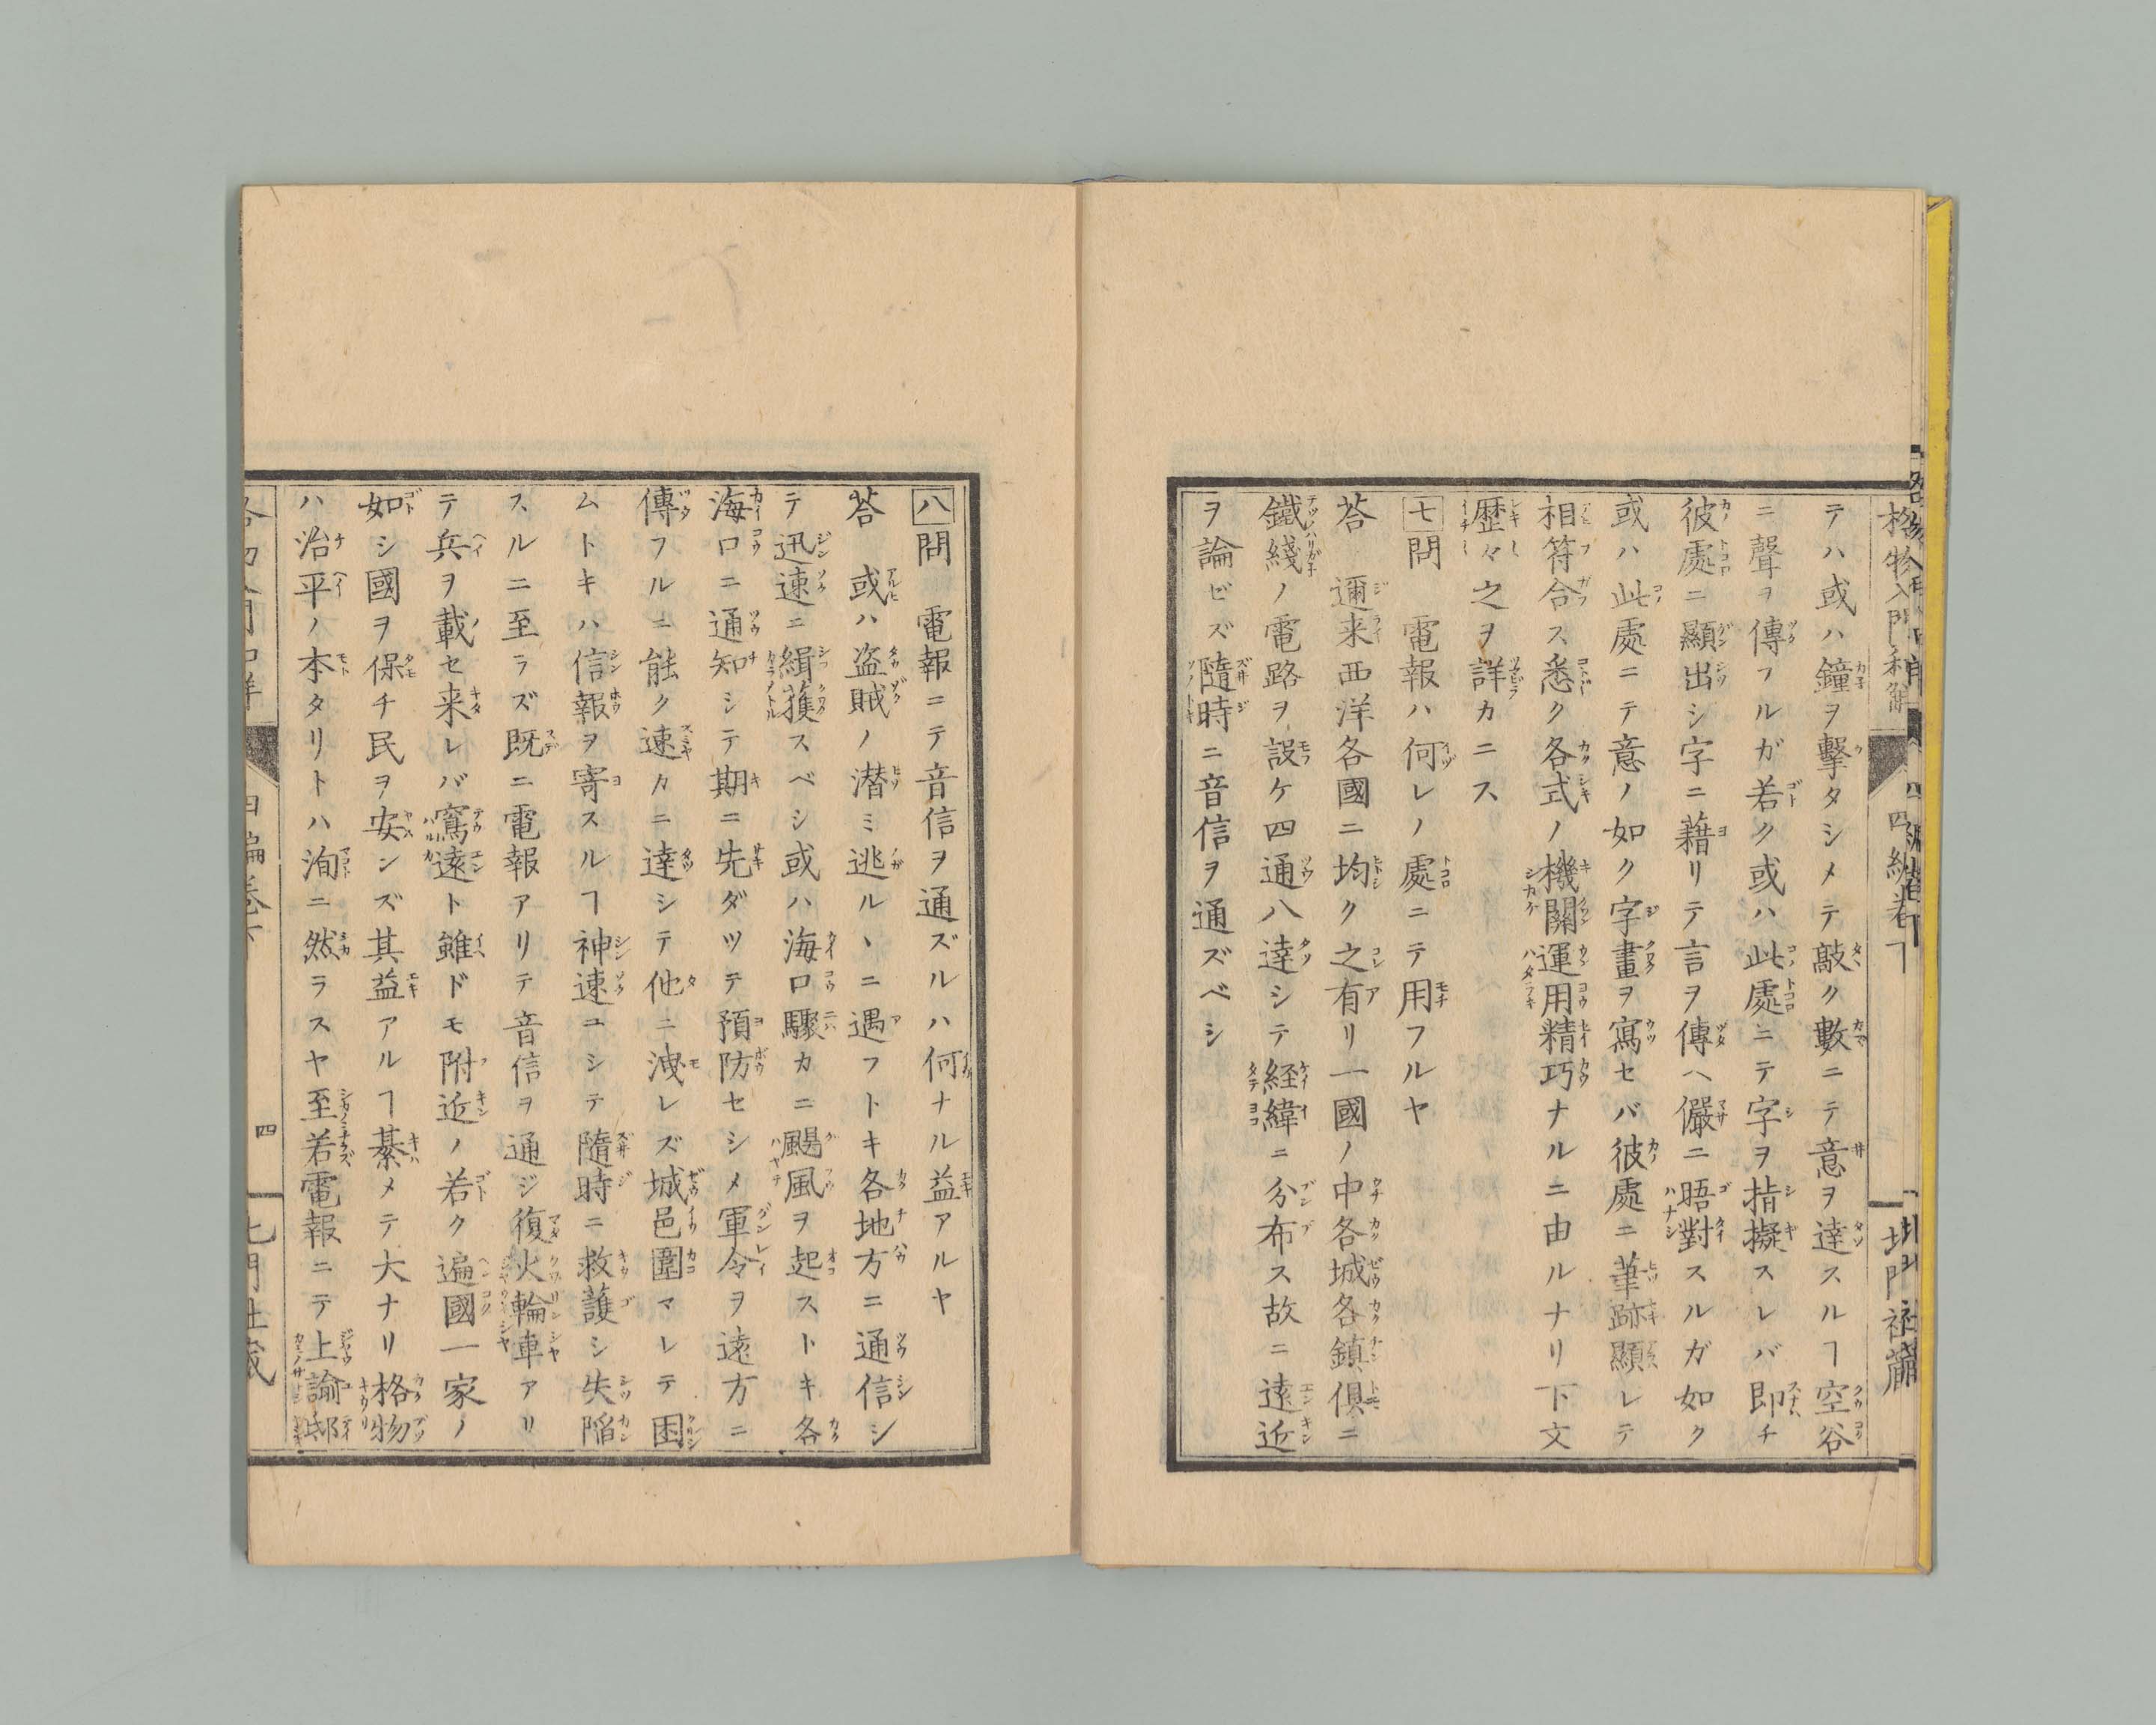 格物入門和解
四編巻下
北門社藏
テハ或ハ鐘ヲ擊タシメテ敲ク數ニテ意ヲ達スルヿ空谷
ニ聲ヲ傳フルガ若ク或ハ此處ニテ字ヲ指擬スレバ即チ
彼處ニ顯出シ字ニ藉リテ言ヲ傳ヘ儼ニ晤對スルガ如ク
或ハ此處ニテ意ノ如ク字畫ヲ寫セバ彼處ニ筆跡顯レテ
相符合ス悉ク各式ノ機關運用精巧ナルニ由ルナリ下文
歷々之ヲ詳カニス
七問　電報ハ何レノ處ニテ用フルヤ
荅　邇来西洋各國ニ均ク之有リ一國ノ中各城各鎮俱ニ
鐵綫ノ電路ヲ設ケ四通八達シテ経緯ニ分布ス故ニ遠近
ヲ論ビズ隨時ニ音信ヲ通ズベシ
八問　電報ニテ音信ヲ通ズルハ何ナル益アルヤ
荅　或ハ盗賊ノ潜ミ逃ルヽニ遇フトキ各地方ニ通信シ
テ迅速ニ緝獲スベシ或ハ海口驟カニ颶風ヲ起ストキ各
海口ニ通知シテ期ニ先ダツテ預防セシメ軍令ヲ遠方ニ
傳フルニ能ク速カニ達シテ他ニ洩レズ城邑圍マレテ困
ムトキハ信報ヲ寄スルヿ神速ユシテ隨時ニ救護シ失陷
スルニ至ラズ既ニ電報アリテ音信ヲ通ジ復火輪車アリ
テ兵ヲ載セ来レバ寫遠ト雖ドモ附近ノ若ク遍國一家ノ
如シ國ヲ保チ民ヲ安ンズ其益アルヿ綦メテ大ナリ格物
ハ治平ノ本タリトハ洵ニ然ラスヤ至若電報ニテ上諭邸
四編巻下
四
北門社藏